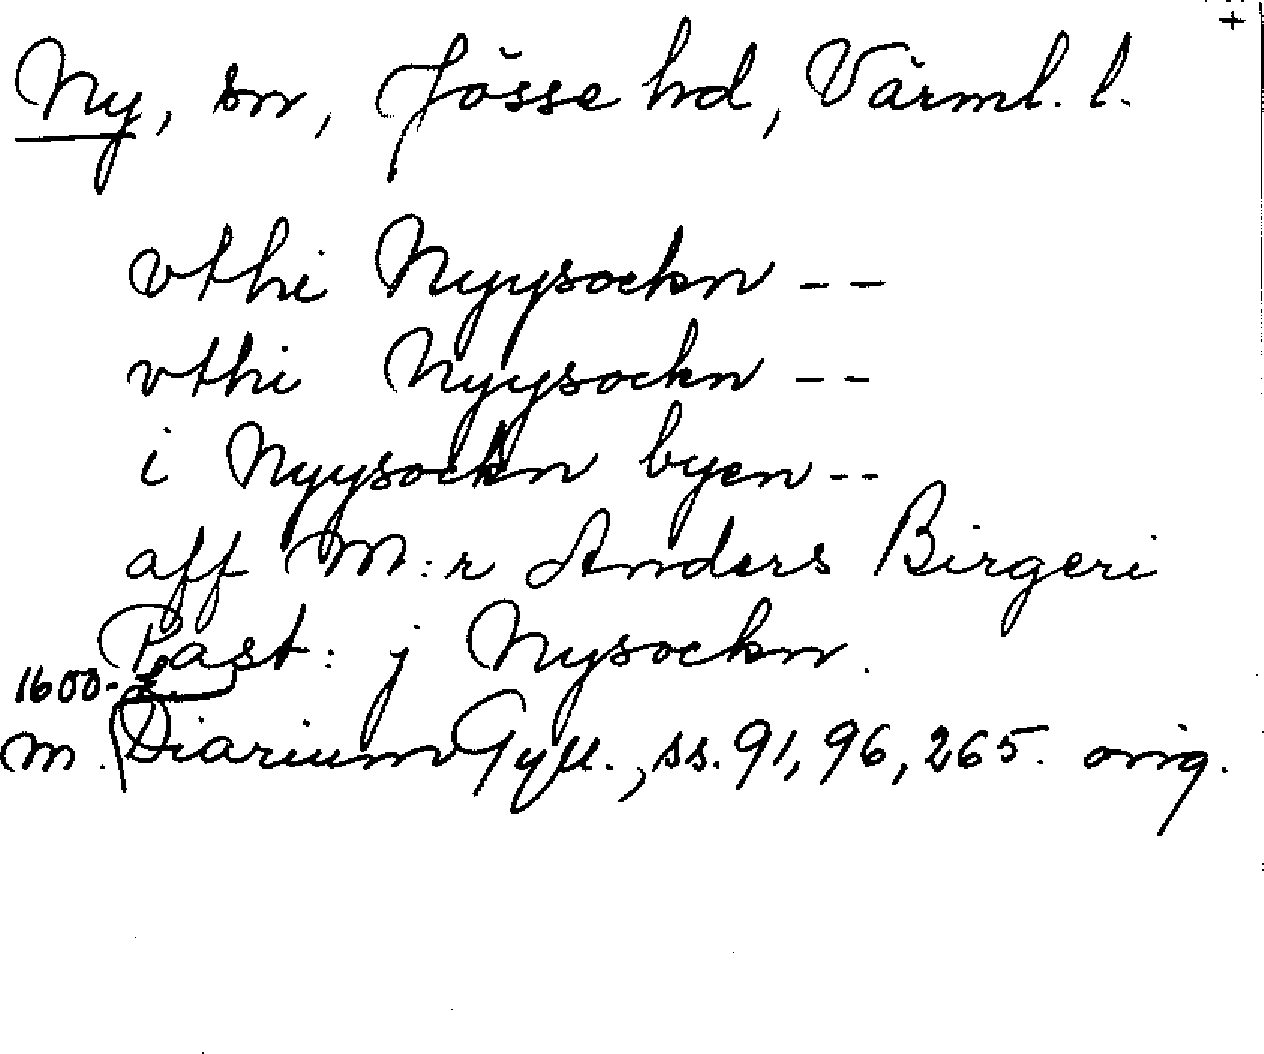 +
Ny, sn, Jösse hd, Värml. l.
vthi Nyysockn --
vthi Nyysockn --
i Nyysockn byen --
aff M:r Anders Birgeri
Past: j Nysockn.
1600-
m. Diarium Gyll., ss. 91, 96, 265. orig.